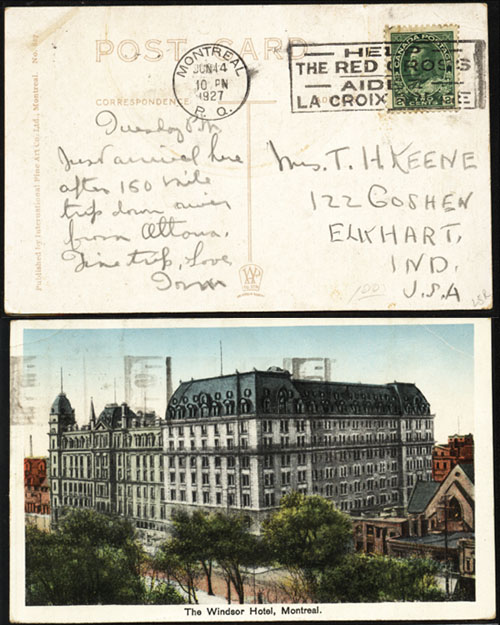 POST CARD
CORRESPONDENCE
Published by International Fine Art Co., Ltd., Montreal.
MONTREAL
JUN 14
10 PM
1927
P.Q.
HELP
THE RED CROSS
AIDE
LA CROIX
CANADA POSTAGE
CENTS
Tuesday 8 PM
Just arrived here
after 150 mile
trip down river
from Ottawa.
Fine trip, Love
Tom
Mrs. T. H KEENE
122 GOSHEN
ELKHART,
IND.
U.S.A
The Windsor Hotel, Montreal.